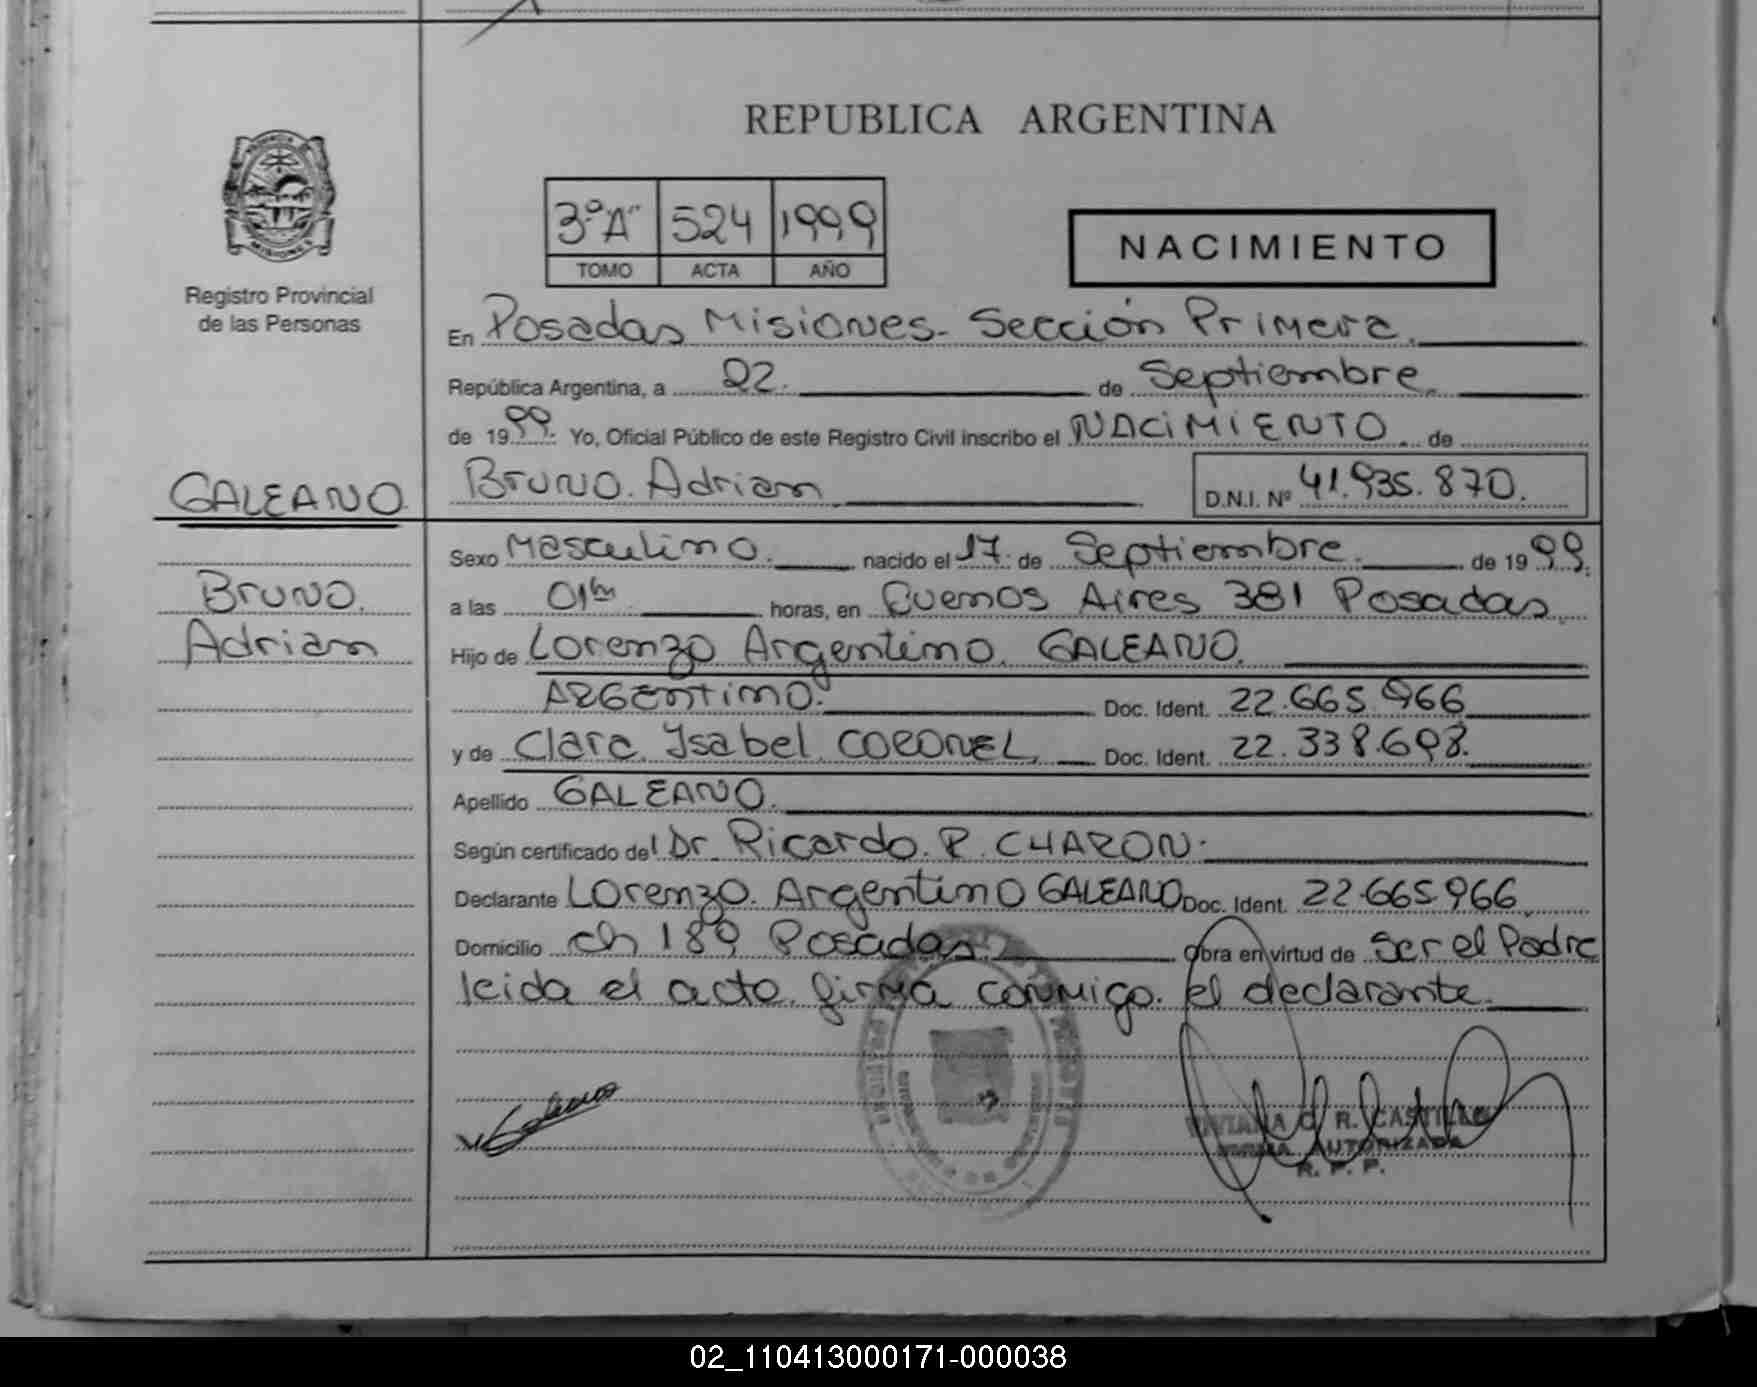 REPUBLICA ARGENTINA
MISIONES
Registro Provincial
de las Personas
3º"A" 524 1999
TOMO ACTA AÑO
NACIMIENTO
En Posadas Misiones - Sección Primera.
República Argentina, a 22. de Septiembre.
de 1999. Yo, Oficial Público de este Registro Civil inscribo el NACIMIENTO. de
GALEANO
Bruno. Adrian
D.N.I. Nº 41.935.870.
Bruno.
Adrian
Sexo Masculino. nacido el 17. de Septiembre. de 1999.
a las 01hs horas, en Buenos Aires 381 Posadas.
Hijo de Lorenzo Argentino. GALEANO.
ARGentino. Doc. Ident. 22.665.966
y de Clara. Isabel. CORONEL. Doc. Ident. 22.338.698.
Apellido GALEANO.
Según certificado del Dr. Ricardo. R. CHARON.
Declarante Lorenzo. Argentino GALEANO Doc. Ident. 22.665.966
Domicilio ch 189 Posadas. Obra en virtud de Ser el Padre
leida el acta. firma conmigo. el declarante.
Galeano
VIVIANA C. R. CASTILLO
FIRMA AUTORIZADA
R. P. P.
02_110413000171-000038